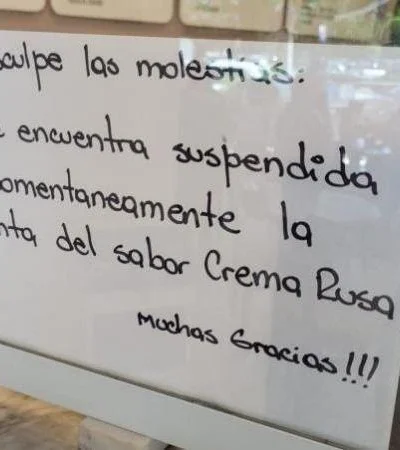 culpe las molestias:
encuentra suspendida
omentaneamente la
nta del sabor Crema Rusa
Muchas Gracias!!!